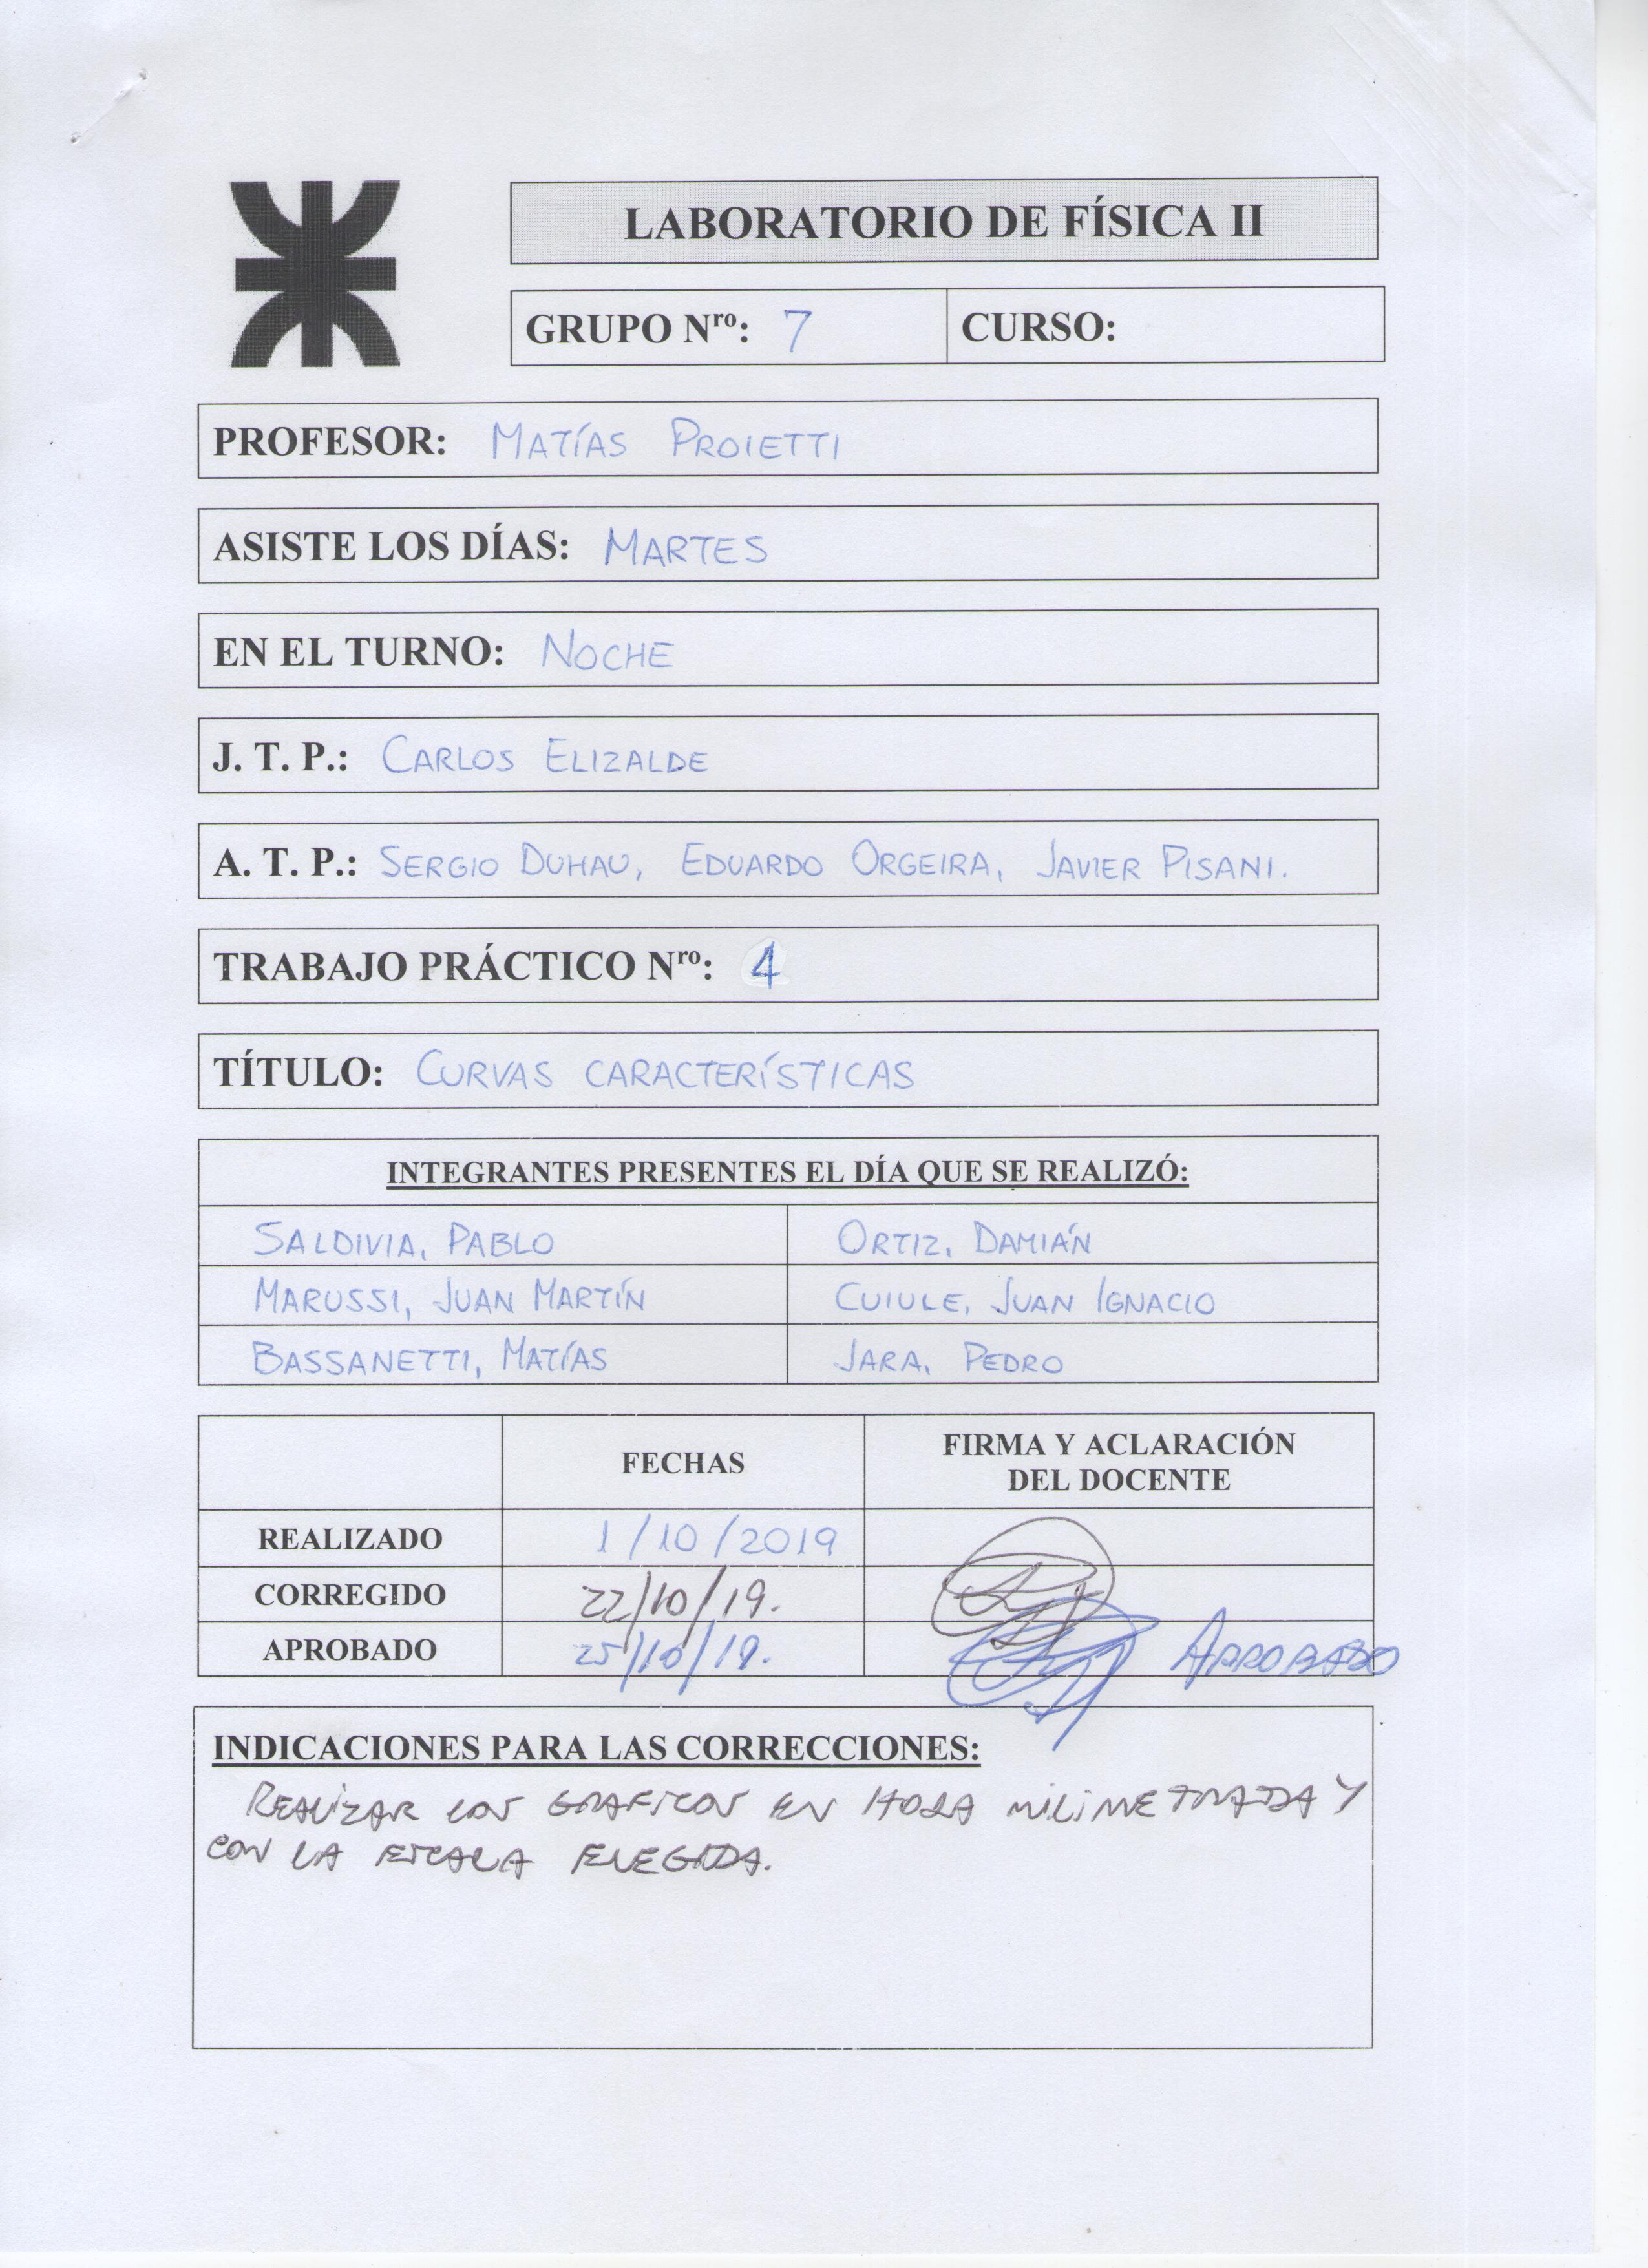 LABORATORIO DE FÍSICA II
GRUPO Nro: 7 CURSO:
PROFESOR: MATÍAS PROIETTI
ASISTE LOS DÍAS: MARTES
EN EL TURNO: NOCHE
J. T. P.: CARLOS ELIZALDE
A. T. P.: SERGIO DUHAU, EDUARDO ORGEIRA, JAVIER PISANI.
TRABAJO PRÁCTICO Nro: 4
TÍTULO: CURVAS CARACTERÍSTICAS
INTEGRANTES PRESENTES EL DÍA QUE SE REALIZÓ:
SALDIVIA, PABLO ORTIZ, DAMIÁN
MARUSSI, JUAN MARTÍN CUIULE, JUAN IGNACIO
BASSANETTI, MATÍAS JARA, PEDRO
FECHAS FIRMA Y ACLARACIÓN
DEL DOCENTE
REALIZADO 1/10/2019
CORREGIDO 22/10/19.
APROBADO 25/10/19. APROBADO
INDICACIONES PARA LAS CORRECCIONES:
REALIZAR LOS GRAFICOS EN HOJA MILIMETRADA Y
CON LA ESCALA ELEGIDA.